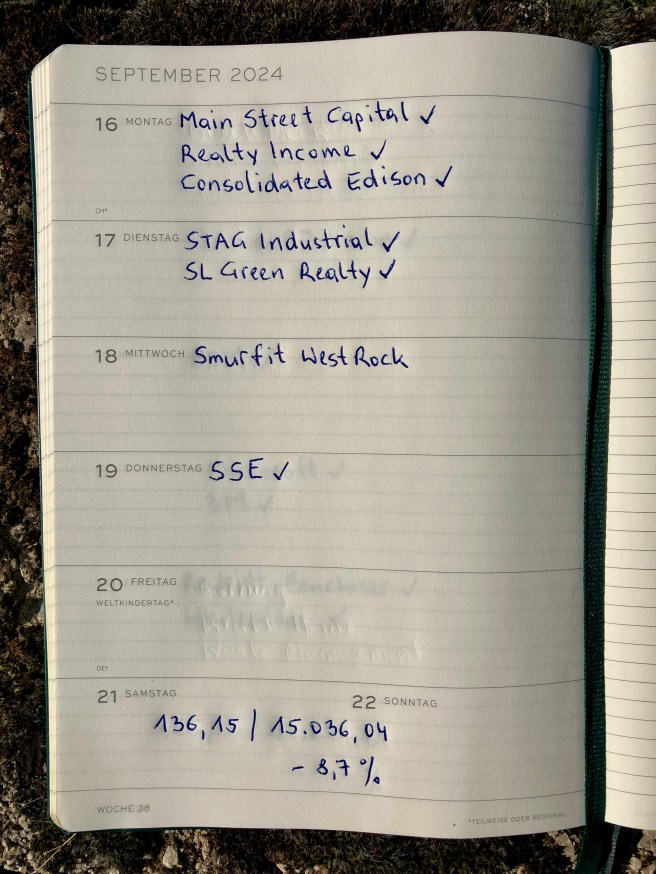 SEPTEMBER 2024
16 MONTAG Main Street Capital ✓
Realty Income ✓
Consolidated Edison ✓
CH*
17 DIENSTAG STAG Industrial ✓
SL Green Realty ✓
18 MITTWOCH Smurfit WestRock
19 DONNERSTAG SSE ✓
3M ✓
20 FREITAG
WELTKINDERTAG*
DE*
21 SAMSTAG 22 SONNTAG
136,15 | 15.036,04
- 8,7 %
WOCHE 38 *TEILWEISE ODER REGIONAL